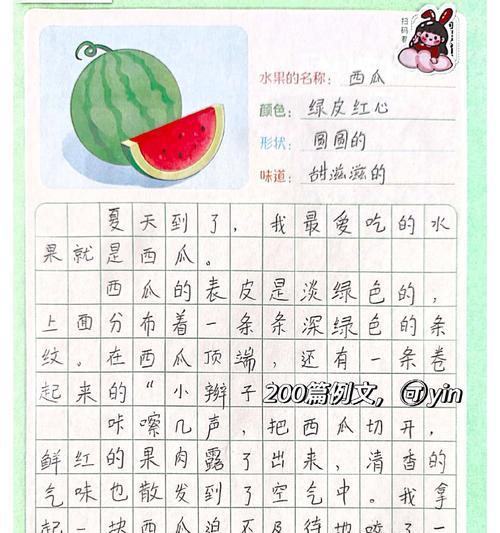 扫码看
水果的名称：西瓜
颜色：绿皮红心
形状：圆圆的
味道：甜滋滋的
夏天到了，我最爱吃的水
果就是西瓜。
西瓜的表皮是淡绿色的，
上面分布着一条条深绿色的条
纹。在西瓜顶端，还有一条卷
起来的“小辫子
200篇例文，可yin
咔嚓几声，把西瓜切开，
鲜红的果肉露了出来，清香的
气味也散发到了空气中。我拿
起一块西瓜迫不及待地咬了一